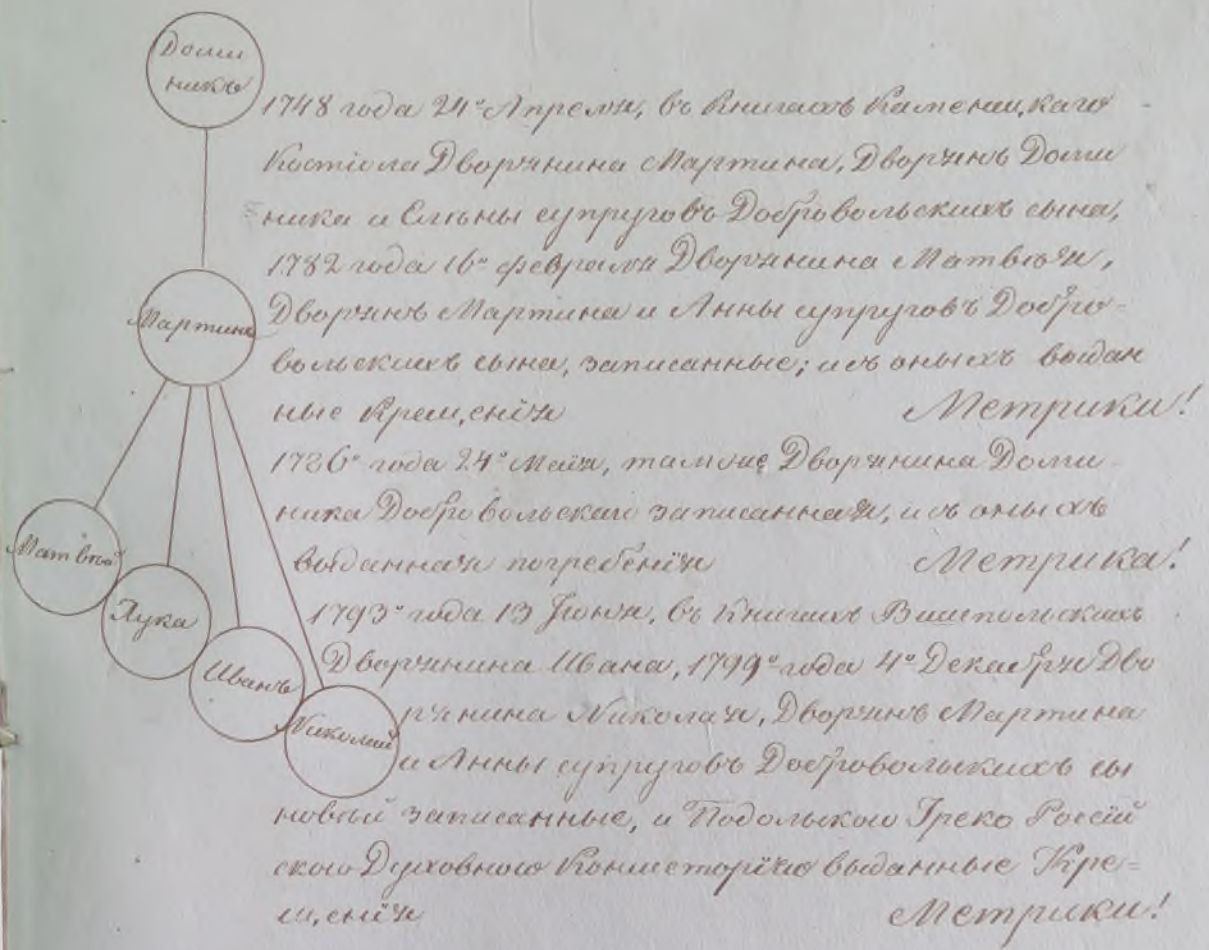 Доми
никъ
1748 года 24º Апреля, въ Книгахъ Каменицкаго
Костіола Дворянина Мартина, Дворянъ Доми
ника и Елѣны супруговъ Добровольскихъ сына,
1782 года 16º февраля Дворянина Матвѣя,
Мартинъ
Дворянъ Мартина и Анны супруговъ Добро-
вольскихъ сына, записанные; изъ оныхъ выдан
ные Крещенія Метрики!
1786º года 24º Маія, таможе Дворянина Доми-
ника Добровольскаго записанная, изъ оныхъ
Матвѣй
выданная погребенія Метрика!
Лука
1793º года 13 Іюня, въ Книгахъ Вишпольскихъ
Дворянина Ивана, 1799º года 4º Декабря Дво
Иванъ
рянина Николая, Дворянъ Мартина
Николай
и Анны супруговъ Добровольскихъ сы
новья записанные, и Подольскою Греко Россій
скою Духовною Консисторіею выданные Кре=
щенія Метрики!